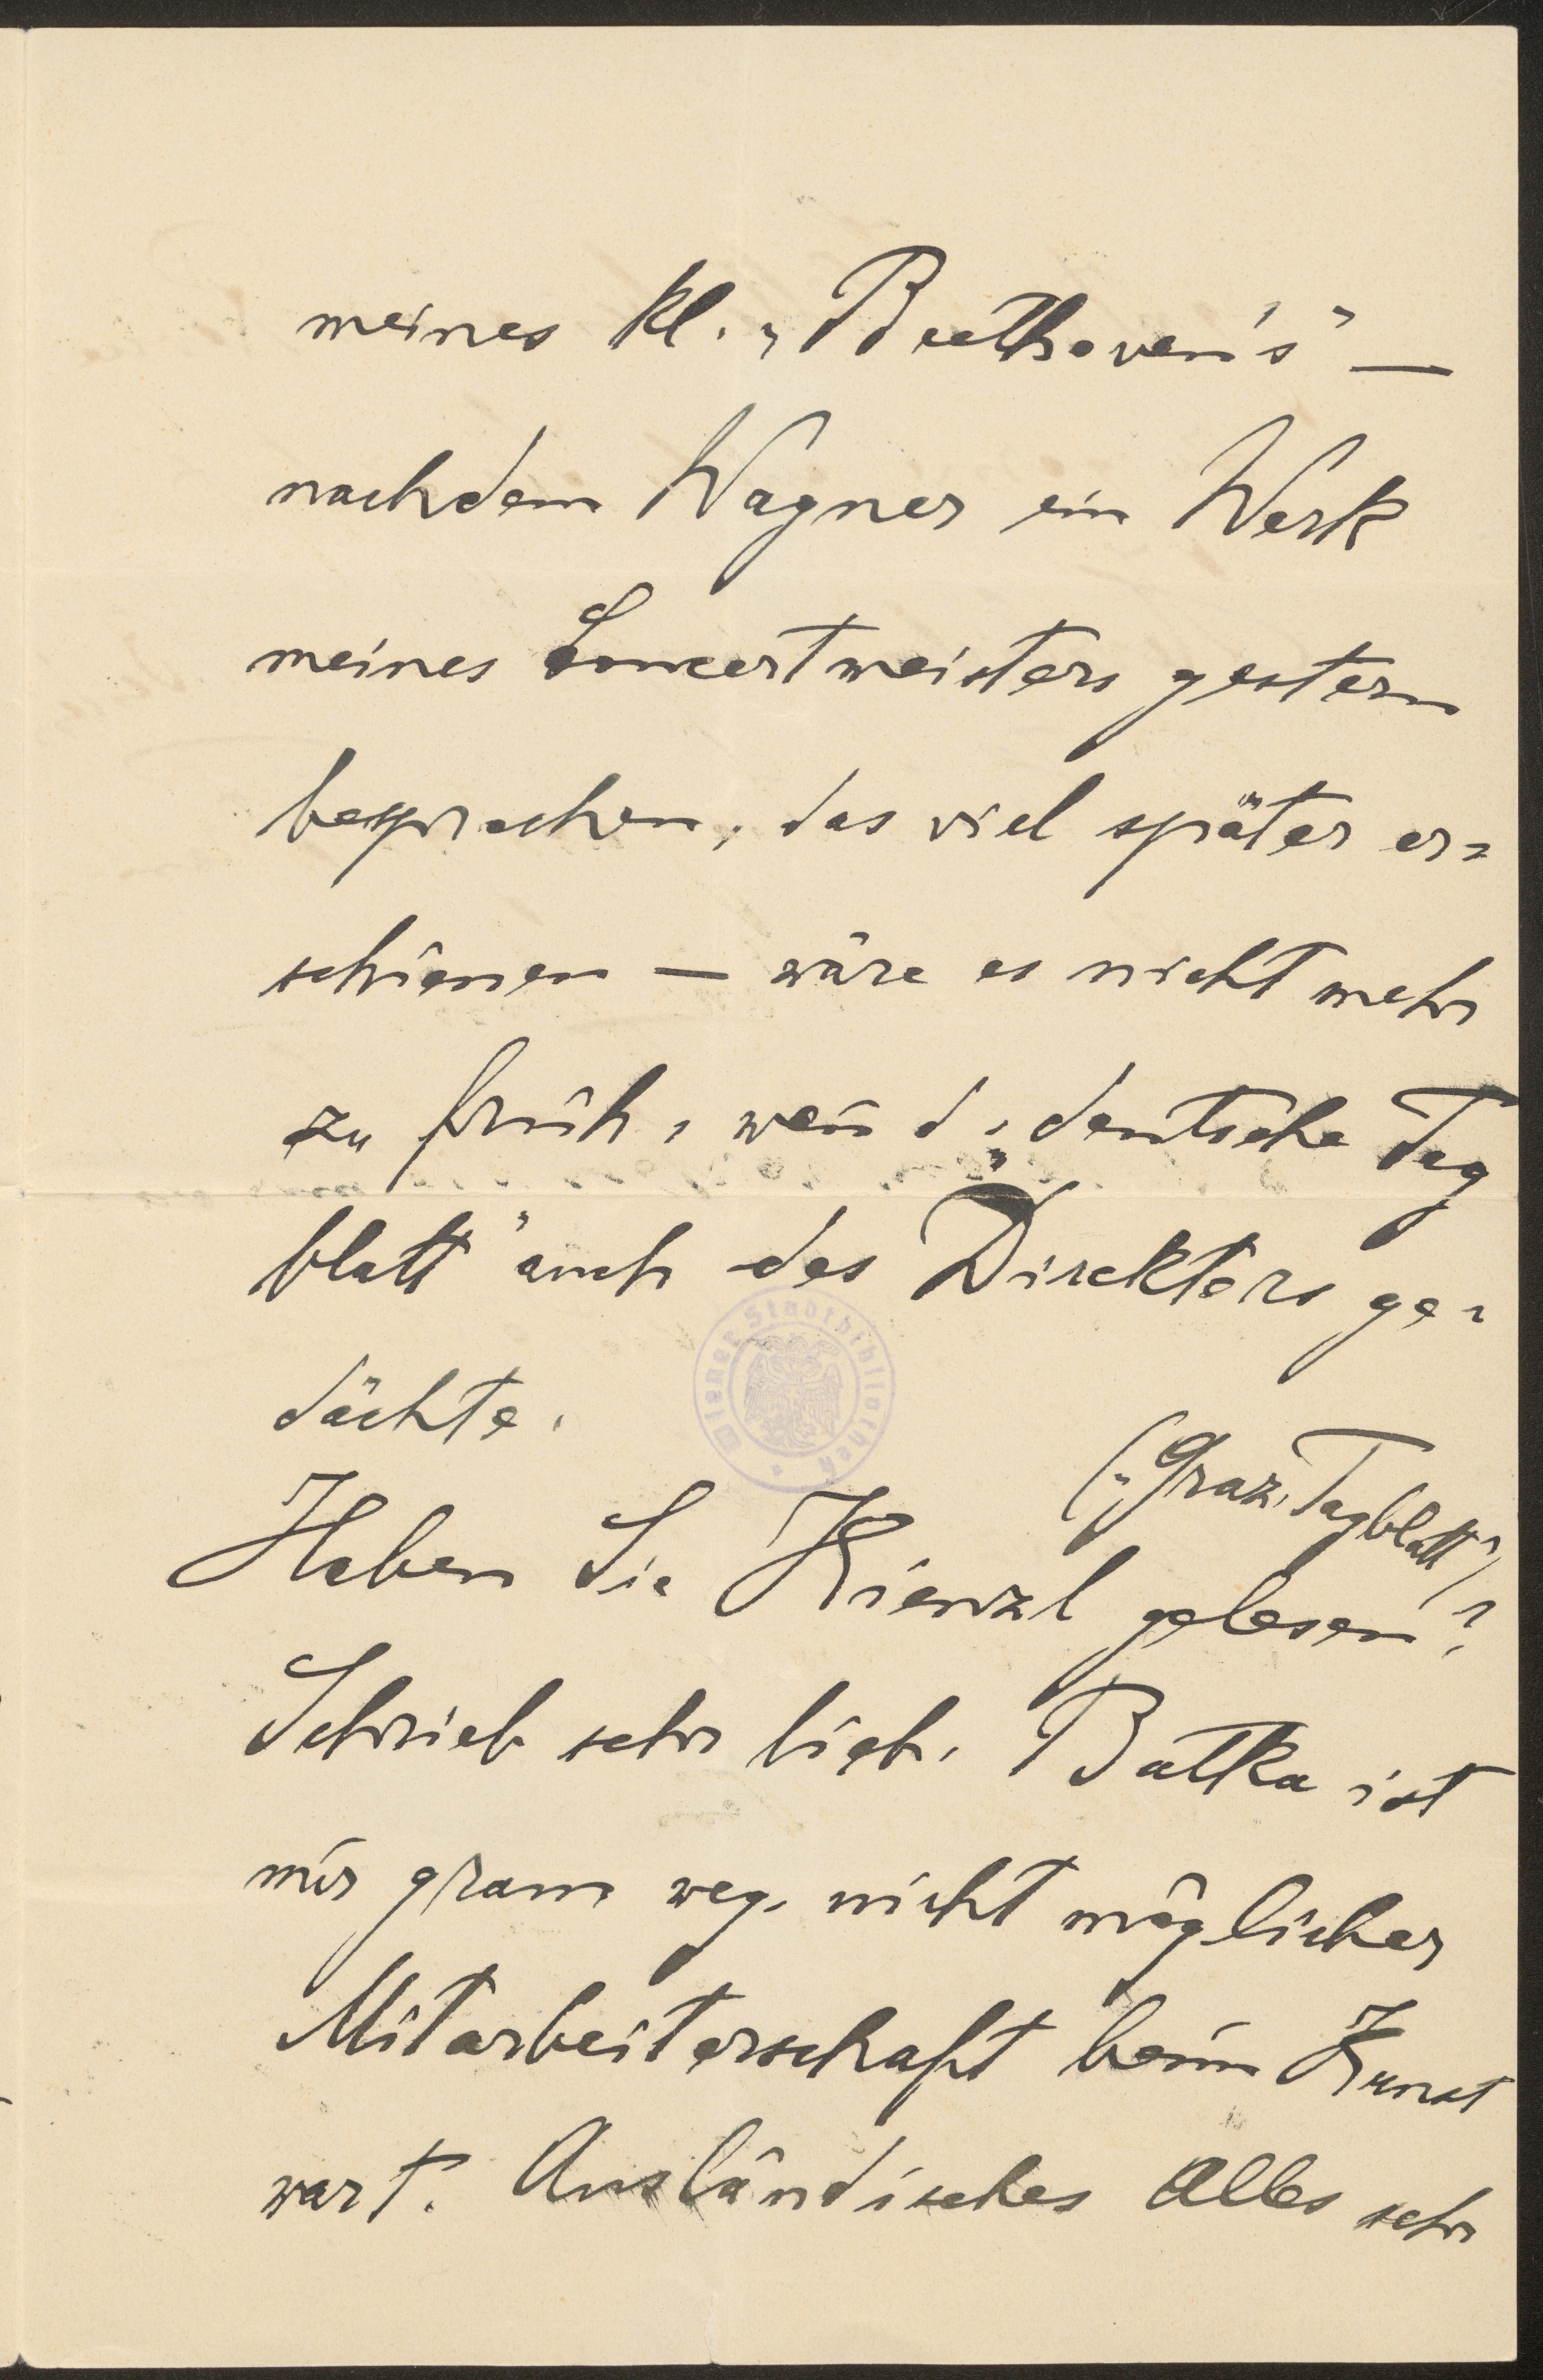 meines kl. „Beethoven's" —
nachdem Wagner ein Werk
meines Concertmeisters gestern
besprachen, das viel später er=
schienen — wäre es nicht mehr
zu früh, wen̄ d. „deutsche Tag
blatt" auch des Direktors ge=
dächte.
(„Graz. Tagblatt")
Haben Sie Kienzl gelesen?
Schrieb sehr lieb. Batka ist
mir gram weg. nicht möglicher
Mitarbeiterschaft beim Kunst
wart. Ausländisches Alles sehr
Wiener Stadtbibliothek